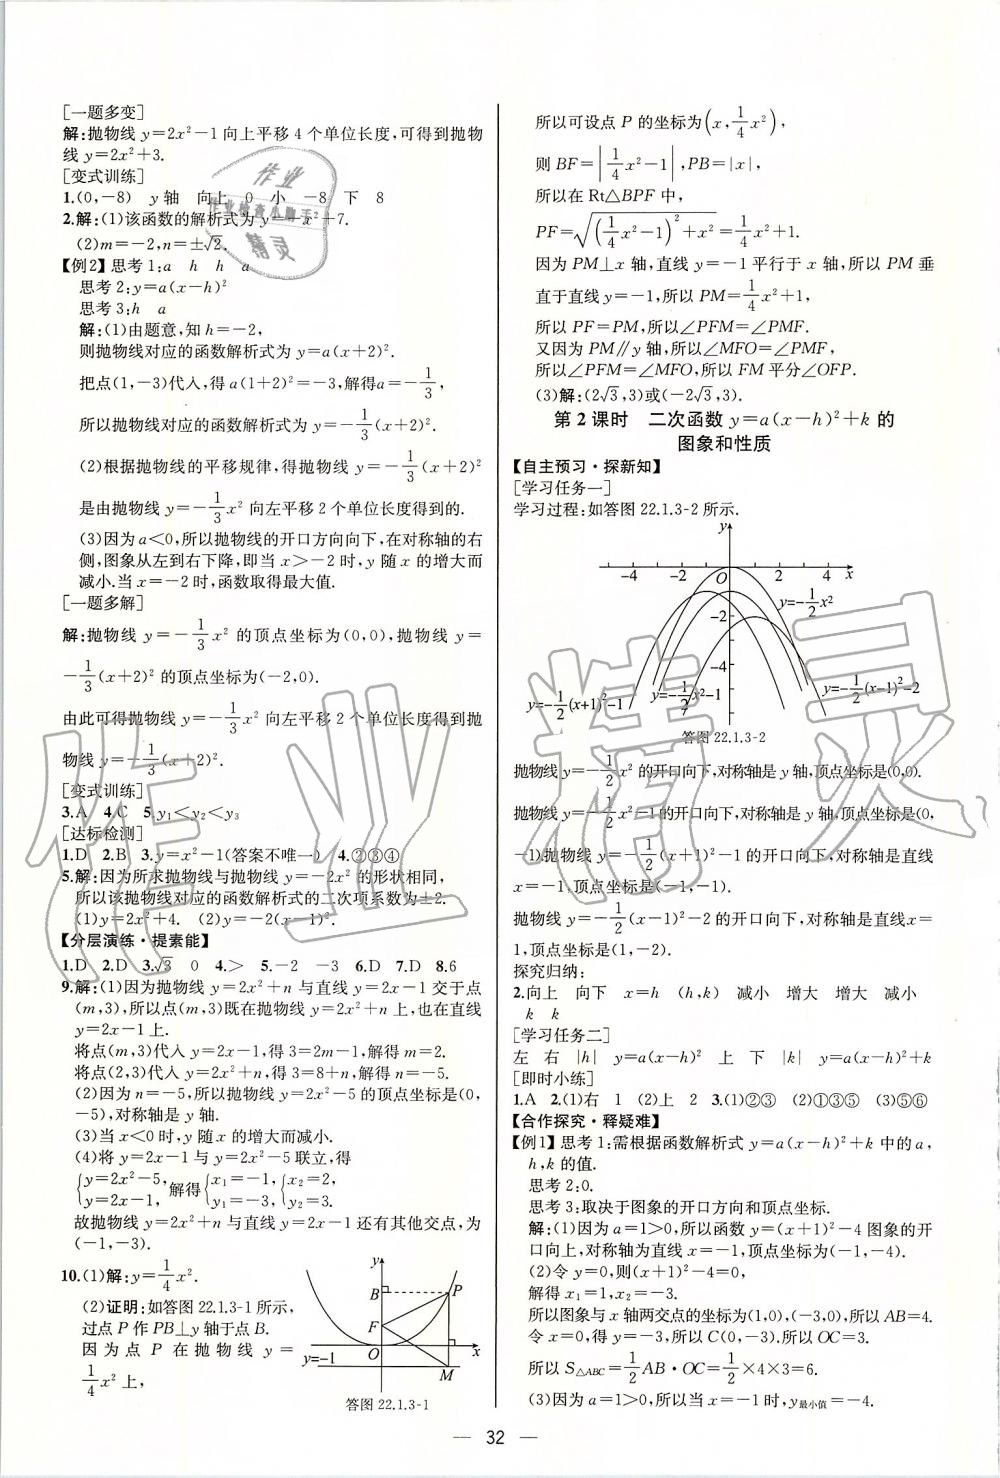 [一题多变]
解:抛物线 y=2x²-1 向上平移 4 个单位长度,可得到抛物
线 y=2x²+3.
[变式训练]
1.(0,-8) y 轴 向上 0 小 -8 下 8
2.解:(1)该函数的解析式为 y=-x²+7.
(2)m=-2,n=±√2.
【例2】思考 1:a h h a
思考 2:y=a(x-h)²
思考 3:h a
解:(1)由题意,知 h=-2,
则抛物线对应的函数解析式为 y=a(x+2)².
把点(1,-3)代入,得 a(1+2)²=-3,解得a=-1/3,
所以抛物线对应的函数解析式为 y=-1/3(x+2)².
(2)根据抛物线的平移规律,得抛物线 y=-1/3(x+2)²
是由抛物线 y=-1/3x² 向左平移 2 个单位长度得到的.
(3)因为 a<0,所以抛物线的开口方向向下,在对称轴的右
侧,图象从左到右下降,即当 x>-2 时,y 随 x 的增大而
减小.当 x=-2 时,函数取得最大值.
[一题多解]
解:抛物线 y=-1/3x² 的顶点坐标为(0,0),抛物线 y=
-1/3(x+2)² 的顶点坐标为(-2,0).
由此可得抛物线 y=-1/3x² 向左平移 2 个单位长度得到抛
物线 y=-1/3(x+2)².
[变式训练]
3.A 4.C 5.y₁<y₂<y₃
[达标检测]
1.D 2.B 3.y=x²-1(答案不唯一) 4.②③④
5.解:因为所求抛物线与抛物线 y=-2x² 的形状相同,
所以该抛物线对应的函数解析式的二次项系数为±2.
(1)y=2x²+4. (2)y=-2(x-1)².
【分层演练·提素能】
1.D 2.D 3.√3 0 4.> 5.-2 -3 6.D 7.D 8.6
9.解:(1)因为抛物线 y=2x²+n 与直线 y=2x-1 交于点
(m,3),所以点(m,3)既在抛物线 y=2x²+n 上,也在直线
y=2x-1 上.
将点(m,3)代入 y=2x-1,得 3=2m-1,解得 m=2.
将点(2,3)代入 y=2x²+n,得 3=8+n,解得 n=-5.
(2)因为 n=-5,所以抛物线 y=2x²-5 的顶点坐标是(0,
-5),对称轴是 y 轴.
(3)当 x<0 时,y 随 x 的增大而减小.
(4)将 y=2x-1 与 y=2x²-5 联立,得
{y=2x²-5, y=2x-1, 解得 {x₁=-1, y₁=-3, {x₂=2, y₂=3.
故抛物线 y=2x²+n 与直线 y=2x-1 还有其他交点,为
(-1,-3).
10.(1)解:y=1/4x².
(2)证明:如答图 22.1.3-1 所示,
过点 P 作 PB⊥y 轴于点 B.
因为点 P 在抛物线 y=
1/4x² 上,
y
B P
F
O x
y=-1
M
答图 22.1.3-1
所以可设点 P 的坐标为(x,1/4x²),
则 BF=|1/4x²-1|,PB=|x|,
所以在 Rt△BPF 中,
PF=√((1/4x²-1)²+x²)=1/4x²+1.
因为 PM⊥x 轴,直线 y=-1 平行于 x 轴,所以 PM 垂
直于直线 y=-1,所以 PM=1/4x²+1,
所以 PF=PM,所以∠PFM=∠PMF.
又因为 PM∥y 轴,所以∠MFO=∠PMF,
所以∠PFM=∠MFO,所以 FM 平分∠OFP.
(3)解:(2√3,3)或(-2√3,3).
第 2 课时 二次函数 y=a(x-h)²+k 的
图象和性质
【自主预习·探新知】
[学习任务一]
学习过程:如答图 22.1.3-2 所示.
y
-4 -2 O 2 4 x
y=-1/2x²
-2
-4
y=-1/2(x+1)²-1 y=-1/2x²-1 y=-1/2(x-1)²-2
答图 22.1.3-2
抛物线 y=-1/2x² 的开口向下,对称轴是 y 轴,顶点坐标是(0,0).
抛物线 y=-1/2x²-1 的开口向下,对称轴是 y 轴,顶点坐标是(0,
-1).抛物线 y=-1/2(x+1)²-1 的开口向下,对称轴是直线
x=-1,顶点坐标是(-1,-1).
抛物线 y=-1/2(x-1)²-2 的开口向下,对称轴是直线 x=
1,顶点坐标是(1,-2).
探究归纳:
2.向上 向下 x=h (h,k) 减小 增大 增大 减小
k k
[学习任务二]
左 右 |h| y=a(x-h)² 上 下 |k| y=a(x-h)²+k
[即时小练]
1.A 2.(1)右 1 (2)上 2 3.(1)②③ (2)①③⑤ (3)⑤⑥
【合作探究·释疑难】
【例1】思考 1:需根据函数解析式 y=a(x-h)²+k 中的 a,
h,k 的值.
思考 2:0.
思考 3:取决于图象的开口方向和顶点坐标.
解:(1)因为 a=1>0,所以函数 y=(x+1)²-4 图象的开
口向上,对称轴为直线 x=-1,顶点为(-1,-4).
(2)令 y=0,则(x+1)²-4=0,
解得 x₁=1,x₂=-3.
所以图象与 x 轴两交点的坐标为(1,0),(-3,0),所以 AB=4.
令 x=0,得 y=-3,所以 C(0,-3).所以 OC=3.
所以 S△ABC=1/2AB·OC=1/2×4×3=6.
(3)因为 a=1>0,所以当 x=-1 时,y最小值=-4.
— 32 —
作业精灵
作业
作业检查小助手
精灵